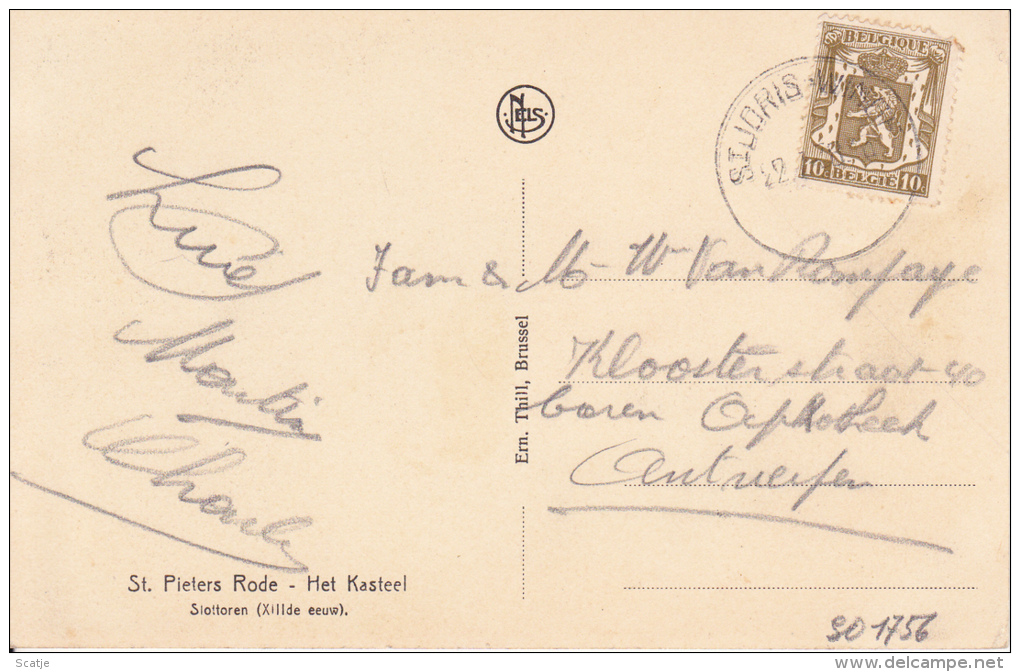 BELGIQUE
10c BELGIË 10c
ST JORIS-WINGE
22
NELS
Martin
Charles
Fam & M- Wr Van Rompaye
Klooster straat 40
boven Apotheek
Antwerpen
Ern. Thill, Brussel
St. Pieters Rode - Het Kasteel
Slottoren (XIIIde eeuw).
SO 1756
Scatje
delcampe.net